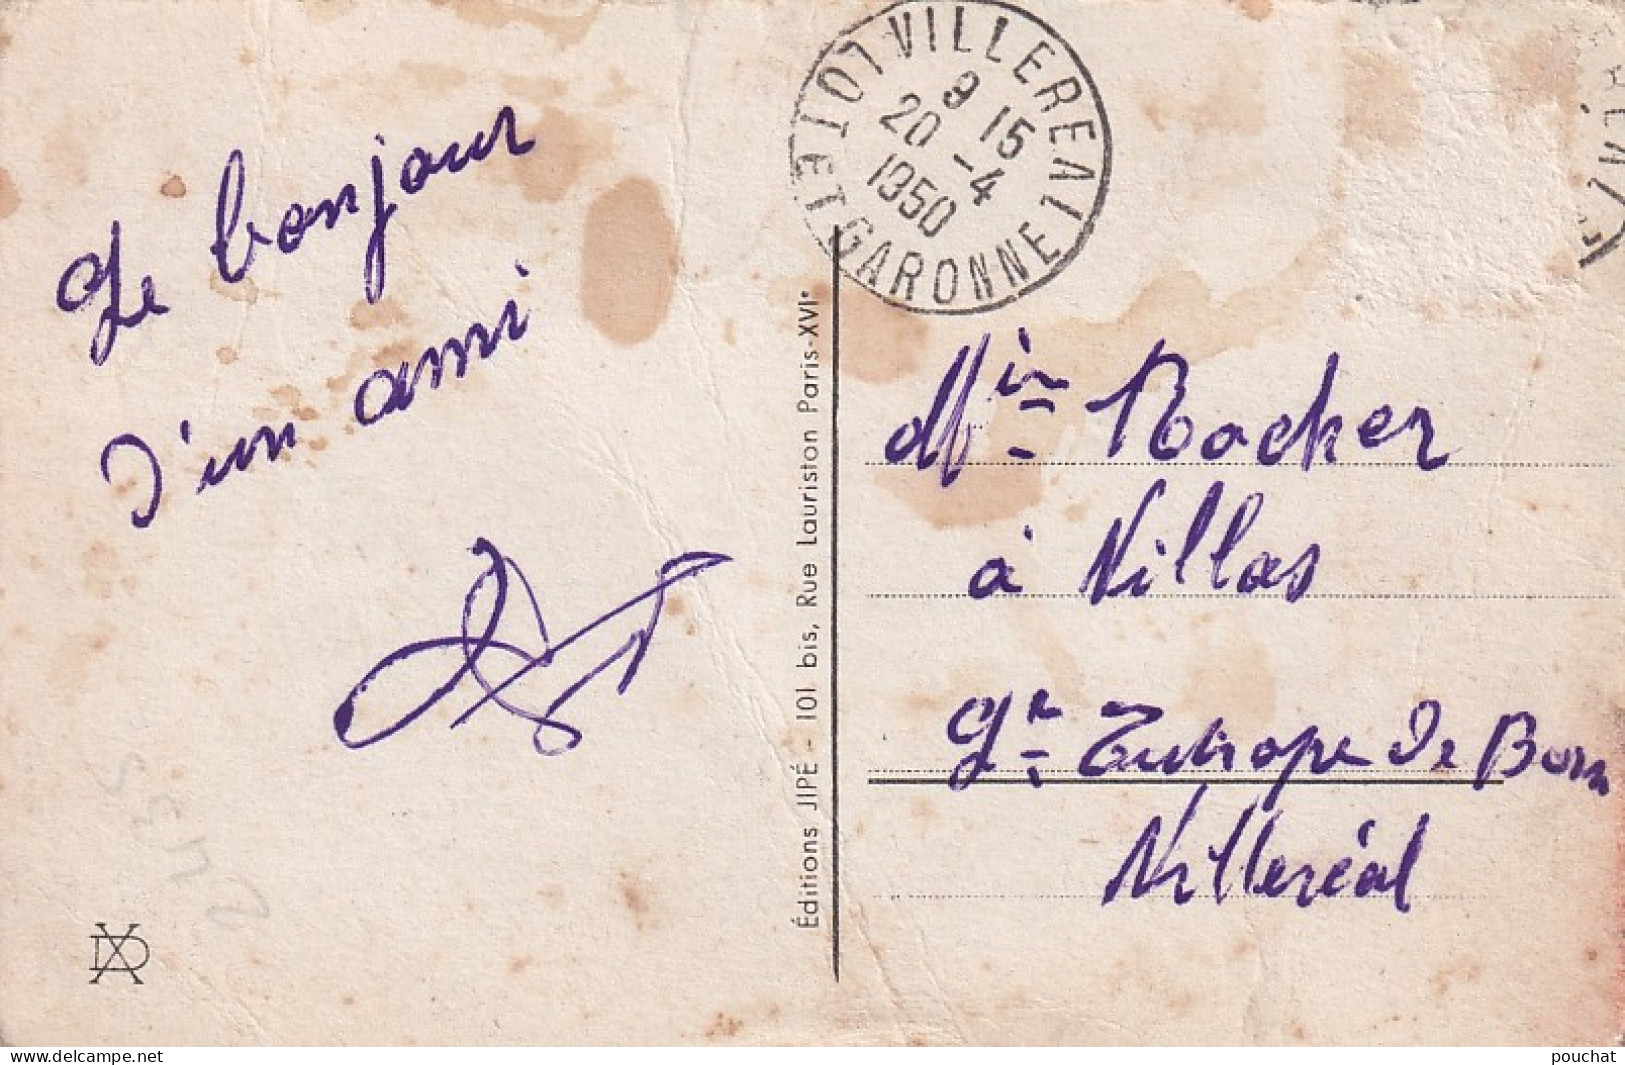 Le bonjour
d'un ami
VILLEREAL
LOT ET GARONNE
9 15
20 -4
1950
Éditions JIPÉ - 101 bis, Rue Lauriston Paris-XVIe
Rocher
à Villas
de Born
Villeréal
www.delcampe.net
pouchat